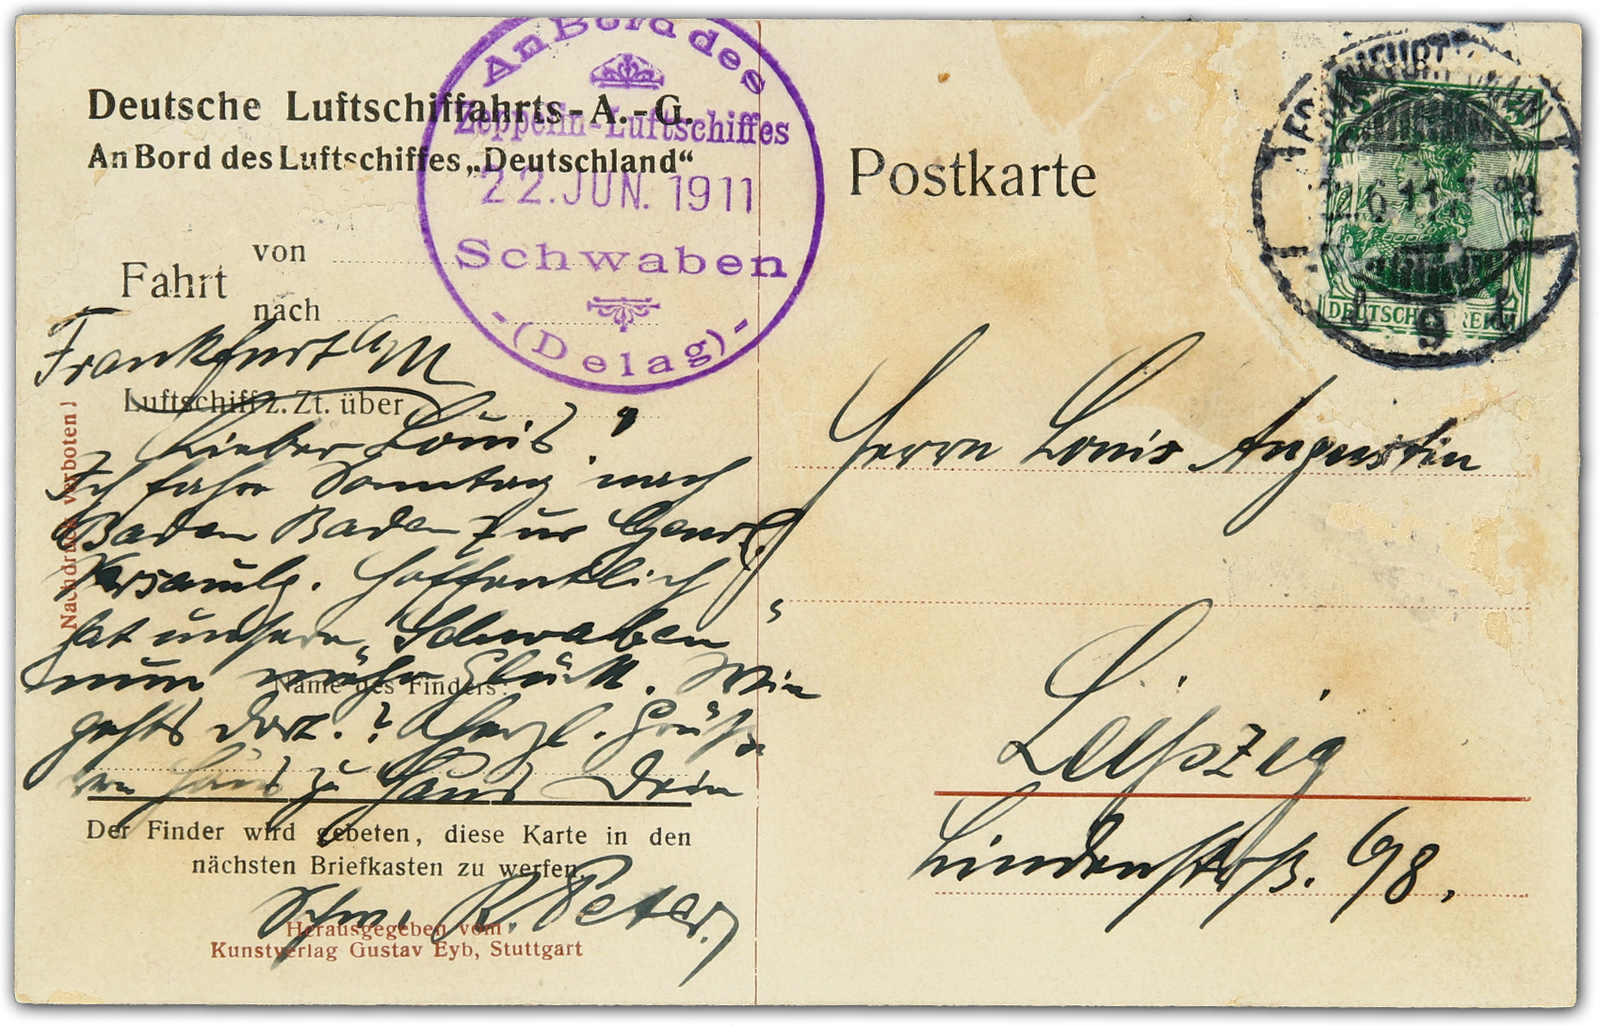 Deutsche Luftschiffahrts-A.-G.
An Bord des Luftschiffes „Deutschland“
An Bord des
Zeppelin-Luftschiffes
22. JUN. 1911
Schwaben
-(Delag)-
Postkarte
FRANKFURT (MAIN)
9
DEUTSCHES REICH
Fahrt
von
nach
Frankfurt a/M
Luftschiff z. Zt. über
Lieber Louis!
Ich fahre Sonntag nach
Baden Baden zur Genrl.
Versamlg. Hoffentlich
hat unsere „Schwaben“
nun mehr Glück. Wie
gehts dort.? Herzl. Grüße
von Haus zu Haus Dein
R. Peter
Name des Finders:
Der Finder wird gebeten, diese Karte in den
nächsten Briefkasten zu werfen.
Herausgegeben vom
Kunstverlag Gustav Eyb, Stuttgart
Nachdruck verboten!
Herrn Louis Augustin
Leipzig
Lindenstrß. 98.